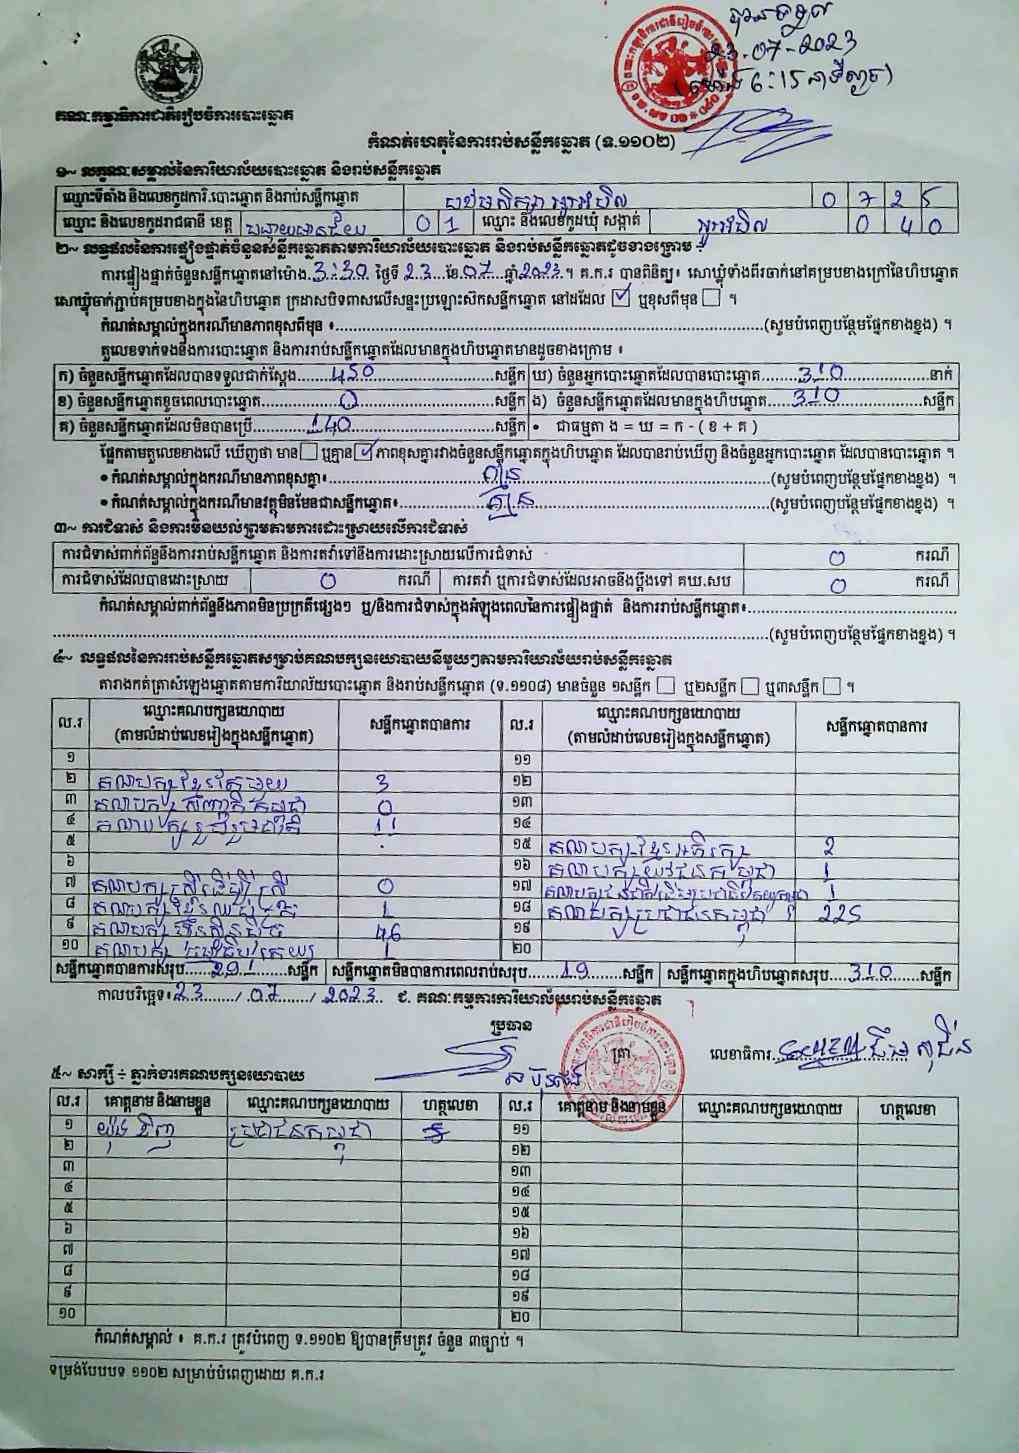 បានទទួល
23-07-2023
គណៈកម្មាធិការជាតិរៀបចំការបោះឆ្នោត
កំណត់ហេតុនៃការរាប់សន្លឹកឆ្នោត (ទ.១១០២)
១~ លក្ខណៈសម្គាល់នៃការិយាល័យបោះឆ្នោត និងរាប់សន្លឹកឆ្នោត
ឈ្មោះទីតាំង និងលេខកូដការិ.បោះឆ្នោត និងរាប់សន្លឹកឆ្នោត 0 7 2 5
ឈ្មោះ និងលេខកូដរាជធានី ខេត្ត បន្ទាយមានជ័យ 0 1 ឈ្មោះ និងលេខកូដឃុំ សង្កាត់ 0 4 0
២~ លទ្ធផលនៃការផ្ទៀងផ្ទាត់ចំនួនសន្លឹកឆ្នោតតាមការិយាល័យបោះឆ្នោត និងរាប់សន្លឹកឆ្នោតដូចខាងក្រោម ៖
ការផ្ទៀងផ្ទាត់ចំនួនសន្លឹកឆ្នោតនៅម៉ោង 3:30 ថ្ងៃទី 23 ខែ 07 ឆ្នាំ 2023 ។ គ.ក.រ បានពិនិត្យ៖ សោឃ្លុំទាំងពីរចាក់នៅគម្របខាងក្រៅនៃហិបឆ្នោត
សោឃ្លុំចាក់ភ្ជាប់គម្របខាងក្នុងនៃហិបឆ្នោត ក្រដាសបិទពាសលើសន្ទះប្រឡោះស៊កសន្លឹកឆ្នោត នៅដដែល ☑ ឬខុសពីមុន ☐ ។
កំណត់សម្គាល់ក្នុងករណីមានភាពខុសពីមុន ៖ (សូមបំពេញបន្ថែមផ្នែកខាងខ្នង) ។
តួលេខទាក់ទងនឹងការបោះឆ្នោត និងការរាប់សន្លឹកឆ្នោតដែលមានក្នុងហិបឆ្នោតមានដូចខាងក្រោម ៖
ក) ចំនួនសន្លឹកឆ្នោតដែលបានទទួលជាក់ស្តែង 450 សន្លឹក ឃ) ចំនួនអ្នកបោះឆ្នោតដែលបានបោះឆ្នោត 310 នាក់
ខ) ចំនួនសន្លឹកឆ្នោតខូចពេលបោះឆ្នោត 0 សន្លឹក ង) ចំនួនសន្លឹកឆ្នោតដែលមានក្នុងហិបឆ្នោត 310 សន្លឹក
គ) ចំនួនសន្លឹកឆ្នោតដែលមិនបានប្រើ 140 សន្លឹក • ជាធម្មតា ង = ឃ = ក - ( ខ + គ )
ផ្អែកតាមតួលេខខាងលើ ឃើញថា មាន ☐ ឬគ្មាន ☑ ភាពខុសគ្នារវាងចំនួនសន្លឹកឆ្នោតក្នុងហិបឆ្នោត ដែលបានរាប់ឃើញ និងចំនួនអ្នកបោះឆ្នោត ដែលបានបោះឆ្នោត ។
• កំណត់សម្គាល់ក្នុងករណីមានភាពខុសគ្នា៖ គ្មាន (សូមបំពេញបន្ថែមផ្នែកខាងខ្នង) ។
• កំណត់សម្គាល់ក្នុងករណីមានវត្ថុមិនមែនជាសន្លឹកឆ្នោត៖ គ្មាន (សូមបំពេញបន្ថែមផ្នែកខាងខ្នង) ។
៣~ ការជំទាស់ និងការមិនយល់ព្រមតាមការដោះស្រាយលើការជំទាស់
ការជំទាស់ពាក់ព័ន្ធនឹងការរាប់សន្លឹកឆ្នោត និងការតវ៉ាទៅនឹងការដោះស្រាយលើការជំទាស់ 0 ករណី
ការជំទាស់ដែលបានដោះស្រាយ 0 ករណី ការតវ៉ា ឬការជំទាស់ដែលអាចនឹងប្តឹងទៅ គឃ.សប 0 ករណី
កំណត់សម្គាល់ពាក់ព័ន្ធនឹងភាពមិនប្រក្រតីផ្សេងៗ ឬ/និងការជំទាស់ក្នុងអំឡុងពេលនៃការផ្ទៀងផ្ទាត់ និងការរាប់សន្លឹកឆ្នោត៖
(សូមបំពេញបន្ថែមផ្នែកខាងខ្នង) ។
៤~ លទ្ធផលនៃការរាប់សន្លឹកឆ្នោតសម្រាប់គណបក្សនយោបាយនីមួយៗតាមការិយាល័យរាប់សន្លឹកឆ្នោត
តារាងកត់ត្រាសំឡេងឆ្នោតតាមការិយាល័យបោះឆ្នោត និងរាប់សន្លឹកឆ្នោត (ទ.១១០៨) មានចំនួន ១សន្លឹក ☐ ឬ២សន្លឹក ☐ ឬ៣សន្លឹក ☐ ។
ល.រ ឈ្មោះគណបក្សនយោបាយ (តាមលំដាប់លេខរៀងក្នុងសន្លឹកឆ្នោត) សន្លឹកឆ្នោតបានការ ល.រ ឈ្មោះគណបក្សនយោបាយ (តាមលំដាប់លេខរៀងក្នុងសន្លឹកឆ្នោត) សន្លឹកឆ្នោតបានការ
១ ១១
២ គណបក្សខ្មែរតែមួយ 3 ១២
៣ 0 ១៣
៤ គណបក្សរួបរួមជាតិ 11 ១៤
៥ ១៥ គណបក្សខ្មែរអភិរក្ស 2
៦ ១៦ គណបក្សយុវជនកម្ពុជា 1
៧ គណបក្សស្ត្រីដើម្បីស្ត្រី 0 ១៧ 1
៨ 1 ១៨ គណបក្សប្រជាជនកម្ពុជា 225
៩ គណបក្សហ៊្វុនស៊ិនប៉ិច 46 ១៩
១០ 1 ២០
សន្លឹកឆ្នោតបានការសរុប 291 សន្លឹក សន្លឹកឆ្នោតមិនបានការពេលរាប់សរុប 19 សន្លឹក សន្លឹកឆ្នោតក្នុងហិបឆ្នោតសរុប 310 សន្លឹក
កាលបរិច្ឆេទ៖ 23 / 07 / 2023 ជ. គណៈកម្មការការិយាល័យរាប់សន្លឹកឆ្នោត
ប្រធាន ត្រា លេខាធិការ
៥~ សាក្សី ÷ ភ្នាក់ងារគណបក្សនយោបាយ
ល.រ គោត្តនាម និងនាមខ្លួន ឈ្មោះគណបក្សនយោបាយ ហត្ថលេខា ល.រ គោត្តនាម និងនាមខ្លួន ឈ្មោះគណបក្សនយោបាយ ហត្ថលេខា
១ ប្រជាជនកម្ពុជា ១១
២ ១២
៣ ១៣
៤ ១៤
៥ ១៥
៦ ១៦
៧ ១៧
៨ ១៨
៩ ១៩
១០ ២០
កំណត់សម្គាល់ ៖ គ.ក.រ ត្រូវបំពេញ ទ.១១០២ ឱ្យបានត្រឹមត្រូវ ចំនួន ៣ច្បាប់ ។
ទម្រង់បែបបទ ១១០២ សម្រាប់បំពេញដោយ គ.ក.រ